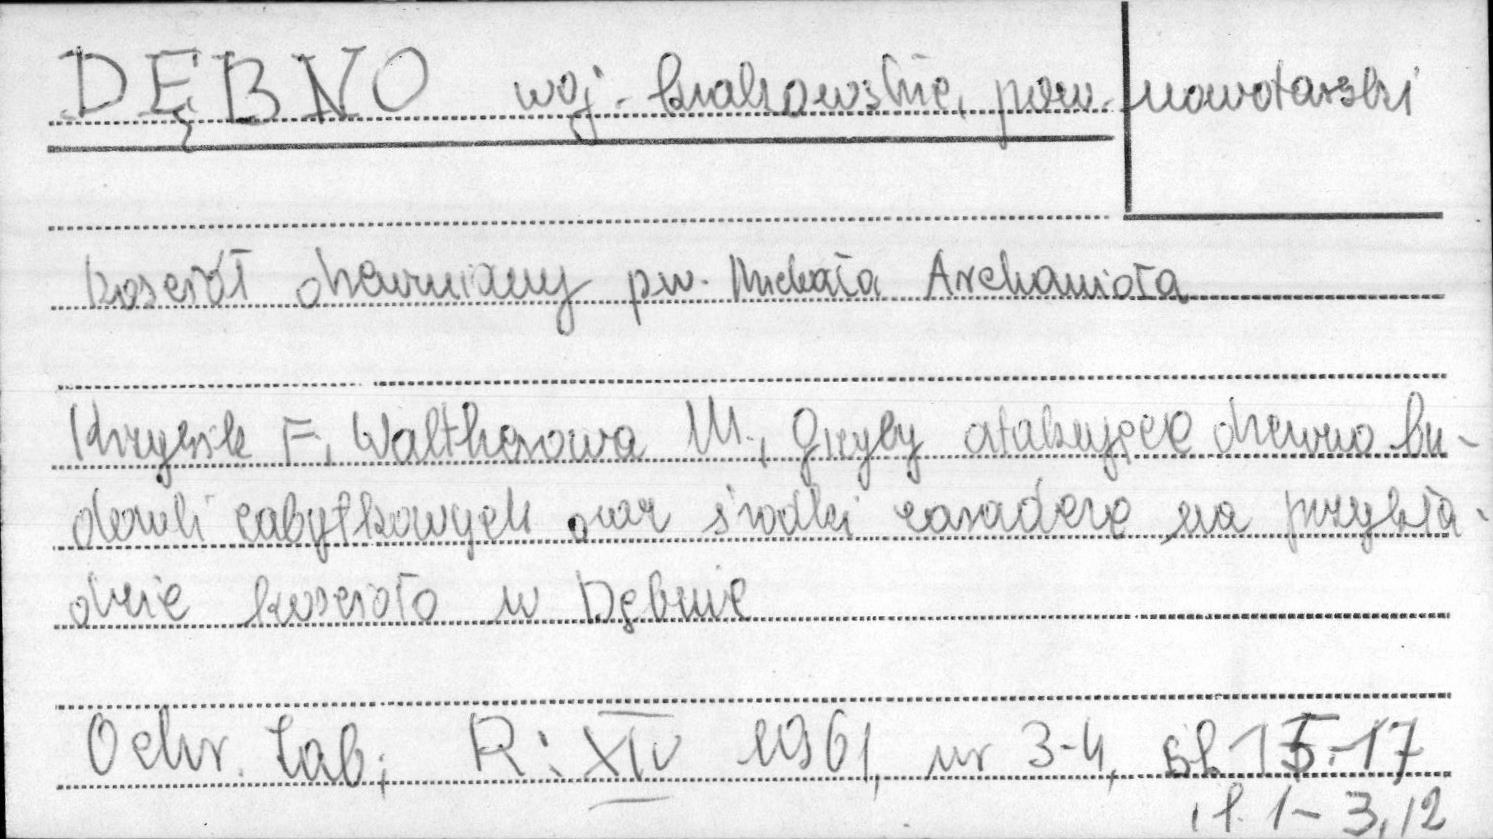 DĘBNO woj. krakowskie, pow. nowotarski
kościół drewniany pw. Michała Archanioła
Krzysik F., Walthosowa M., Grzyby atakujące drewno bu-
dowli zabytkowych oraz środki zaradcze na przykła-
dzie kościoła w Dębnie
Ochr. Zab; R: XIV 1961, nr 3-4, 15-17
il. 1-3, 12